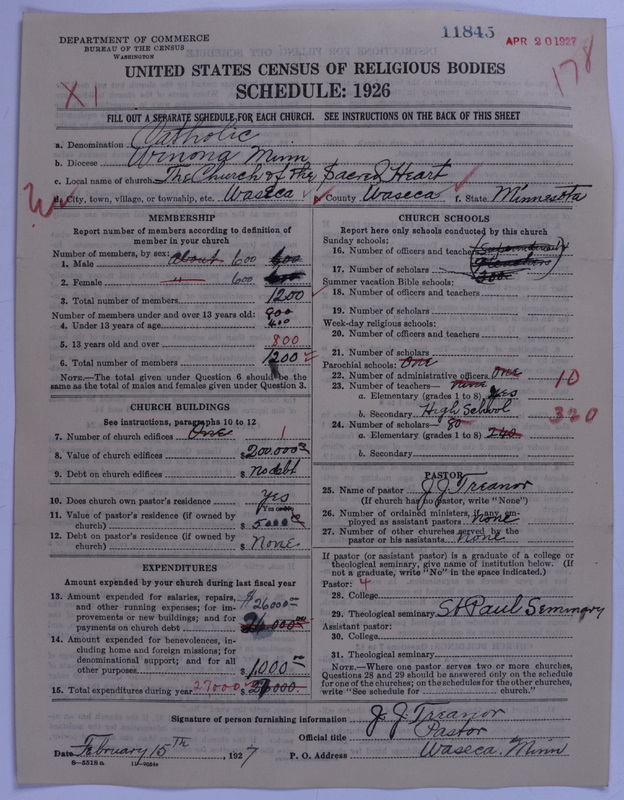 11845
APR 20 1927
178
DEPARTMENT OF COMMERCE
BUREAU OF THE CENSUS
WASHINGTON
UNITED STATES CENSUS OF RELIGIOUS BODIES
SCHEDULE: 1926
X1
FILL OUT A SEPARATE SCHEDULE FOR EACH CHURCH. SEE INSTRUCTIONS ON THE BACK OF THIS SHEET
a. Denomination Catholic
b. Diocese Winona Minn
c. Local name of church The Church of the Sacred Heart
d. City, town, village, or township, etc. Waseca County Waseca f. State Minnesota
MEMBERSHIP
Report number of members according to definition of member in your church
Number of members, by sex:
1. Male about 600 600
2. Female " 600 600
3. Total number of members 1200
Number of members under and over 13 years old: 800
4. Under 13 years of age 400
5. 13 years old and over 800
6. Total number of members 1200
NOTE.—The total given under Question 6 should be the same as the total of males and females given under Question 3.
CHURCH BUILDINGS
See instructions, paragraphs 10 to 12
7. Number of church edifices One 1
8. Value of church edifices $200,000
9. Debt on church edifices $ No debt
10. Does church own pastor's residence Yes
Yes or no
11. Value of pastor's residence (if owned by church) $ 5000
12. Debt on pastor's residence (if owned by church) $ None
EXPENDITURES
Amount expended by your church during last fiscal year
13. Amount expended for salaries, repairs, and other running expenses; for improvements or new buildings; and for payments on church debt $26000 26,000
14. Amount expended for benevolences, including home and foreign missions; for denominational support; and for all other purposes $1,000
15. Total expenditures during year 27000 $27,000
CHURCH SCHOOLS
Report here only schools conducted by this church
Sunday schools:
16. Number of officers and teachers
17. Number of scholars
Summer vacation Bible schools:
18. Number of officers and teachers
19. Number of scholars
Week-day religious schools:
20. Number of officers and teachers
21. Number of scholars
Parochial schools: One
22. Number of administrative officers One
23. Number of teachers— 10
a. Elementary (grades 1 to 8) yes
b. Secondary High School
320
24. Number of scholars— 80
a. Elementary (grades 1 to 8) 240
b. Secondary
PASTOR
25. Name of pastor J. J. Treanor
(If church has no pastor, write "None")
26. Number of ordained ministers, if any, employed as assistant pastors None
27. Number of other churches served by the pastor or his assistants None
If pastor (or assistant pastor) is a graduate of a college or theological seminary, give name of institution below. (If not a graduate, write "No" in the space indicated.)
Pastor: 4
28. College
29. Theological seminary St Paul Seminary
Assistant pastor:
30. College
31. Theological seminary
NOTE.—Where one pastor serves two or more churches, Questions 28 and 29 should be answered only on the schedule for one of the churches; on the schedules for the other churches, write "See schedule for church."
Signature of person furnishing information J. J. Treanor
Official title Pastor
Date February 15th, 1927 P. O. Address Waseca, Minn